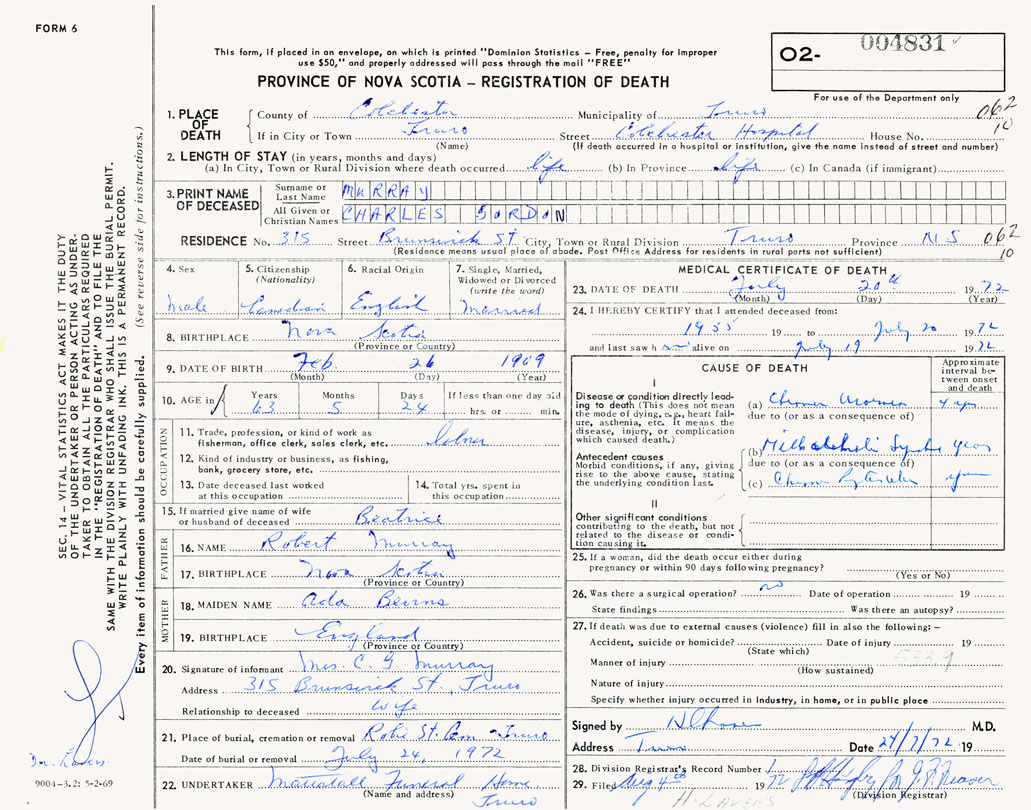 FORM 6
This form, if placed in an envelope, on which is printed "Dominion Statistics – Free, penalty for improper
use $50," and properly addressed will pass through the mail "FREE"
PROVINCE OF NOVA SCOTIA – REGISTRATION OF DEATH
O2- 004831
For use of the Department only
062
10
1. PLACE OF DEATH
County of Colchester Municipality of Truro
If in City or Town Truro Street Colchester Hospital House No.
(Name) (If death occurred in a hospital or institution, give the name instead of street and number)
2. LENGTH OF STAY (in years, months and days)
(a) In City, Town or Rural Division where death occurred life (b) In Province life (c) In Canada (if immigrant)
3. PRINT NAME OF DECEASED
Surname or Last Name MURRAY
All Given or Christian Names CHARLES GORDON
RESIDENCE No. 315 Street Brunswick St. City, Town or Rural Division Truro Province NS 062
(Residence means usual place of abode. Post Office Address for residents in rural ports not sufficient) 10
4. Sex
Male
5. Citizenship
(Nationality)
Canadian
6. Racial Origin
English
7. Single, Married,
Widowed or Divorced
(write the word)
Married
8. BIRTHPLACE Nova Scotia
(Province or Country)
9. DATE OF BIRTH Feb. 26 1909
(Month) (Day) (Year)
10. AGE in
Years Months Days If less than one day old
63 5 24 hrs. or min.
OCCUPATION
11. Trade, profession, or kind of work as
fisherman, office clerk, sales clerk, etc.
12. Kind of industry or business, as fishing,
bank, grocery store, etc.
13. Date deceased last worked
at this occupation
14. Total yrs. spent in
this occupation
15. If married give name of wife
or husband of deceased Beatrice
FATHER
16. NAME Robert Murray
17. BIRTHPLACE Nova Scotia
(Province or Country)
MOTHER
18. MAIDEN NAME Ada
19. BIRTHPLACE England
(Province or Country)
20. Signature of informant Mrs. C. G Murray
Address 315 Brunswick St., Truro
Relationship to deceased Wife
21. Place of burial, cremation or removal Robie St. Cem Truro
Date of burial or removal July 24, 1972
22. UNDERTAKER Mattatall Funeral Home
(Name and address) Truro
MEDICAL CERTIFICATE OF DEATH
23. DATE OF DEATH July 20th 1972
(Month) (Day) (Year)
24. I HEREBY CERTIFY that I attended deceased from:
1955 19 to July 20 1972
and last saw h alive on July 19 1972
CAUSE OF DEATH
Approximate
interval be-
tween onset
and death
I
Disease or condition directly lead-
ing to death (This does not mean
the mode of dying, e.g., heart fail-
ure, asthenia, etc. It means the
disease, injury, or complication
which caused death.)
(a) 4 yrs
due to (or as a consequence of)
Antecedent causes
Morbid conditions, if any, giving
rise to the above cause, stating
the underlying condition last.
(b) years
due to (or as a consequence of)
(c)
II
Other significant conditions
contributing to the death, but not
related to the disease or condi-
tion causing it.
25. If a woman, did the death occur either during
pregnancy or within 90 days following pregnancy?
(Yes or No)
26. Was there a surgical operation? no Date of operation 19
State findings Was there an autopsy?
27. If death was due to external causes (violence) fill in also the following: –
Accident, suicide or homicide? Date of injury 19
(State which)
Manner of injury
(How sustained)
Nature of injury
Specify whether injury occurred in industry, in home, or in public place
Signed by M.D.
Address Truro Date 24/7/72 19
28. Division Registrar's Record Number
29. Filed Aug 4th 1972
(Division Registrar)
H. LAVERS
SEC. 14 – VITAL STATISTICS ACT MAKES IT THE DUTY
OF THE UNDERTAKER OR PERSON ACTING AS UNDER-
TAKER TO OBTAIN ALL THE PARTICULARS REQUIRED
IN THE "REGISTRATION OF DEATH" AND TO FILE THE
SAME WITH THE DIVISION REGISTRAR WHO SHALL ISSUE THE BURIAL PERMIT.
WRITE PLAINLY WITH UNFADING INK. THIS IS A PERMANENT RECORD.
Every item of information should be carefully supplied. (See reverse side for instructions.)
Dr. Lavers
9004-3.2: 5-2-69